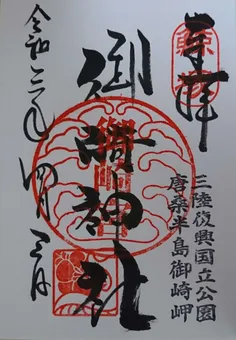 奉拝
三陸復興国立公園
唐桑半島御崎岬
御崎神社
令和三年四月三日